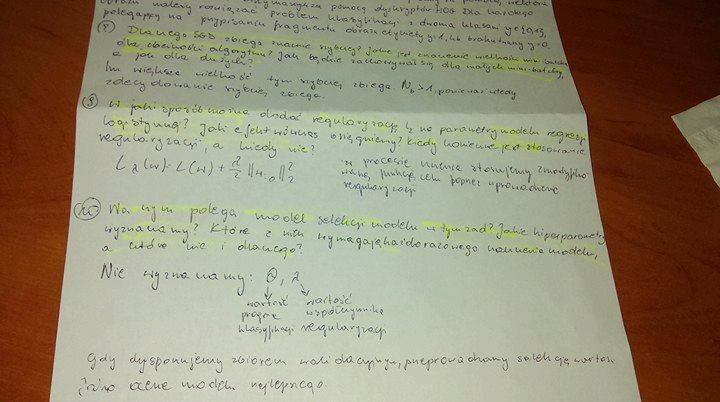 obrazu należy rozwiązać problem klasyfikacji z dwoma klasami y={0,1},
polegającą na przypisaniu fragmentu obrazu etykiety y=1, lub braku twarzy y=0.
Dlaczego SGD zbiega znacznie szybciej? Jakie jest znaczenie wielkości mini-batcha
dla zbieżności algorytmu? Jak będzie zachowywał się dla małych mini-batchy,
a jak dla dużych?
Im większa wielkość tym szybciej zbiega. N_b>1, ponieważ wtedy
zdecydowanie szybciej zbiega.
W jaki sposób można dodać regularyzację l2 na parametry modelu regresji
logistycznej? Jaki efekt wówczas osiągniemy? Kiedy konieczne jest stosowanie
regularyzacji, a kiedy nie?
L_λ(w)=L(w)+λ/2 ||w_-0||²_2
w procesie uczenia stosujemy zmodyfiko-
waną funkcję celu poprzez wprowadzenie
regularyzacji
10 Na czym polega model selekcji modelu w tym zad? Jakie hiperparametry
wyznaczamy? Które z nich wymagają każdorazowego uczenia modelu,
a które nie i dlaczego?
Nie wyznaczamy: Θ, λ
wartość wartość
progu współczynnika
klasyfikacji regularyzacji
Gdy dysponujemy zbiorem walidacyjnym, przeprowadzamy selekcję
modelu najlepszego.